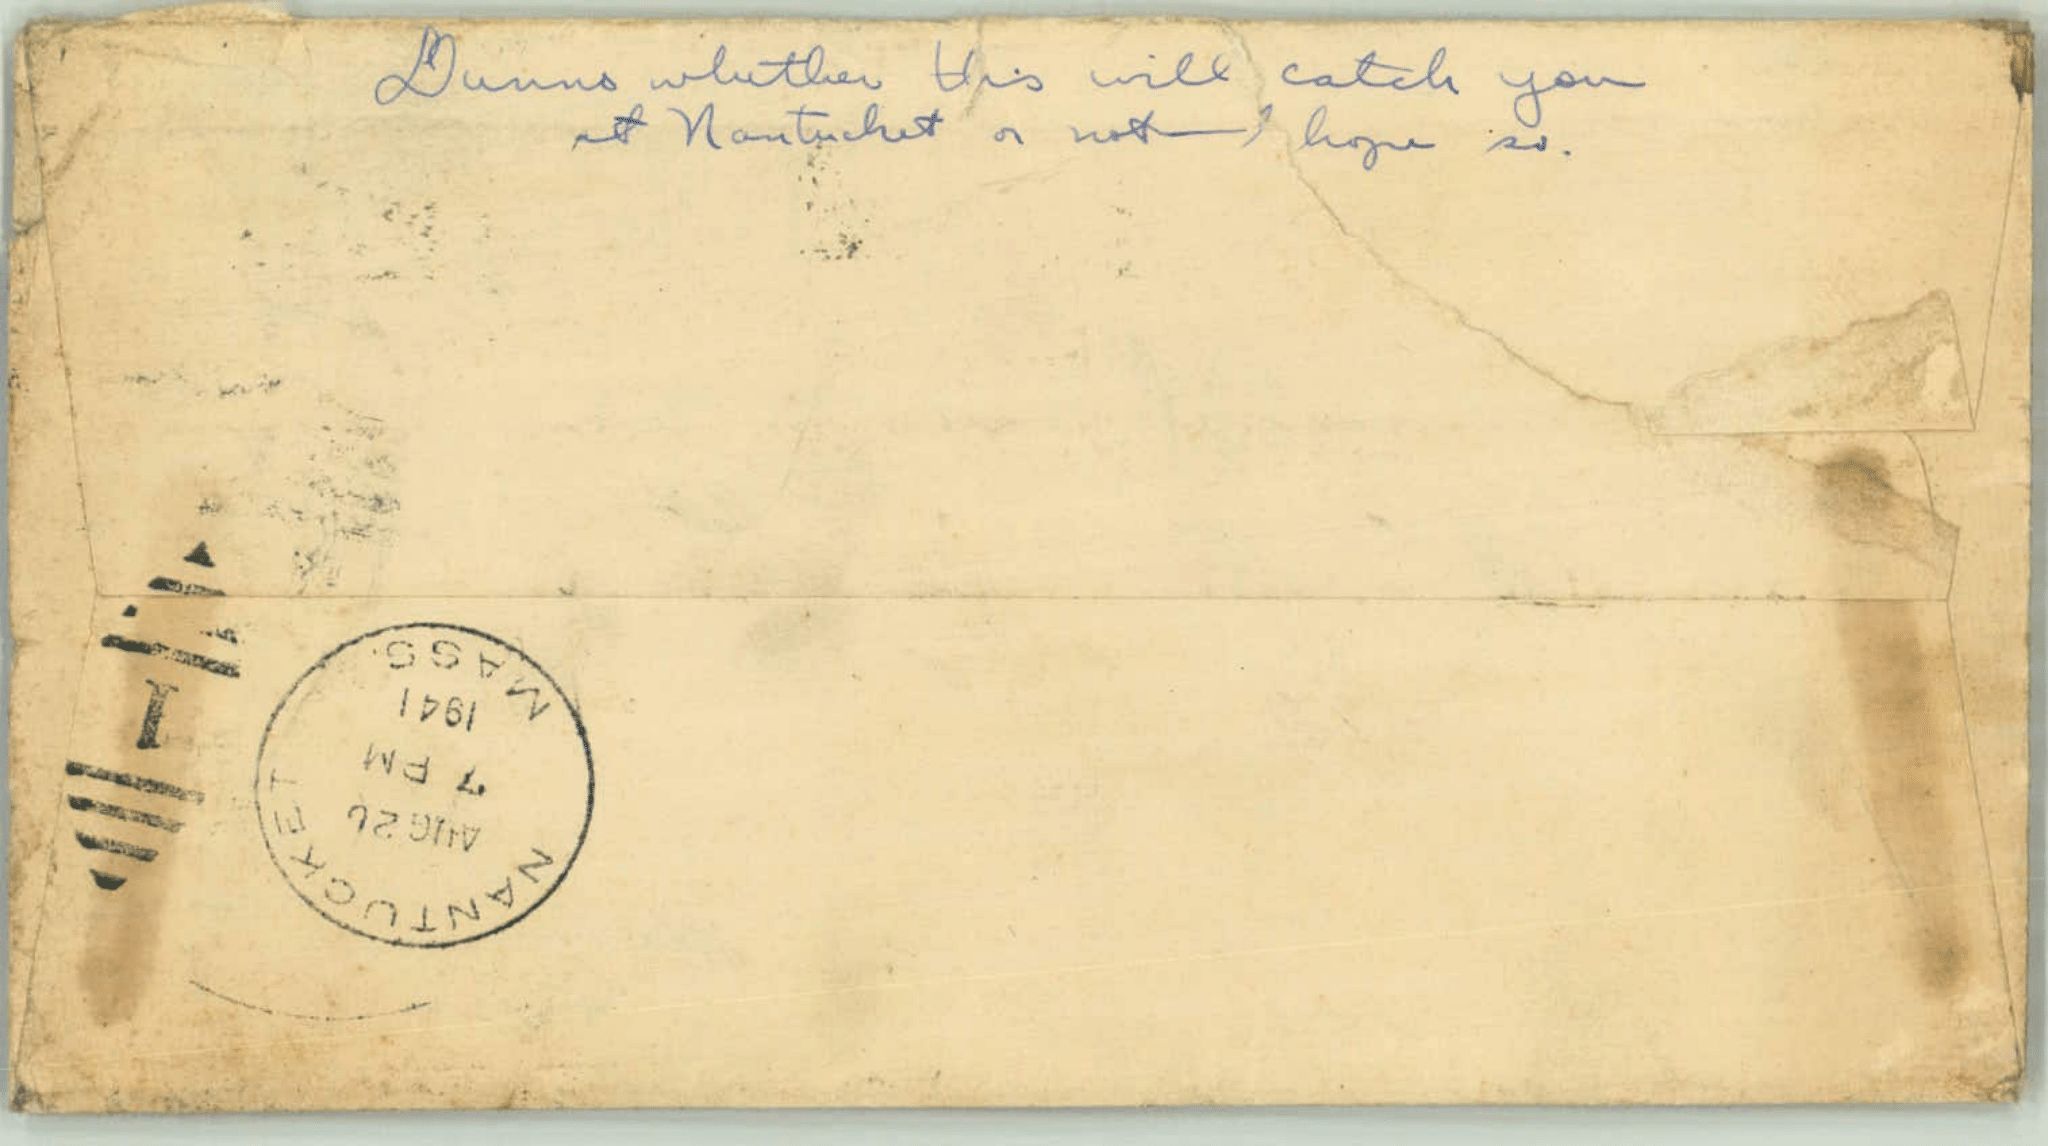 Dunno whether this will catch you
at Nantucket or not — I hope so.
NANTUCKET
MASS.
AUG 26
7 PM
1941
1